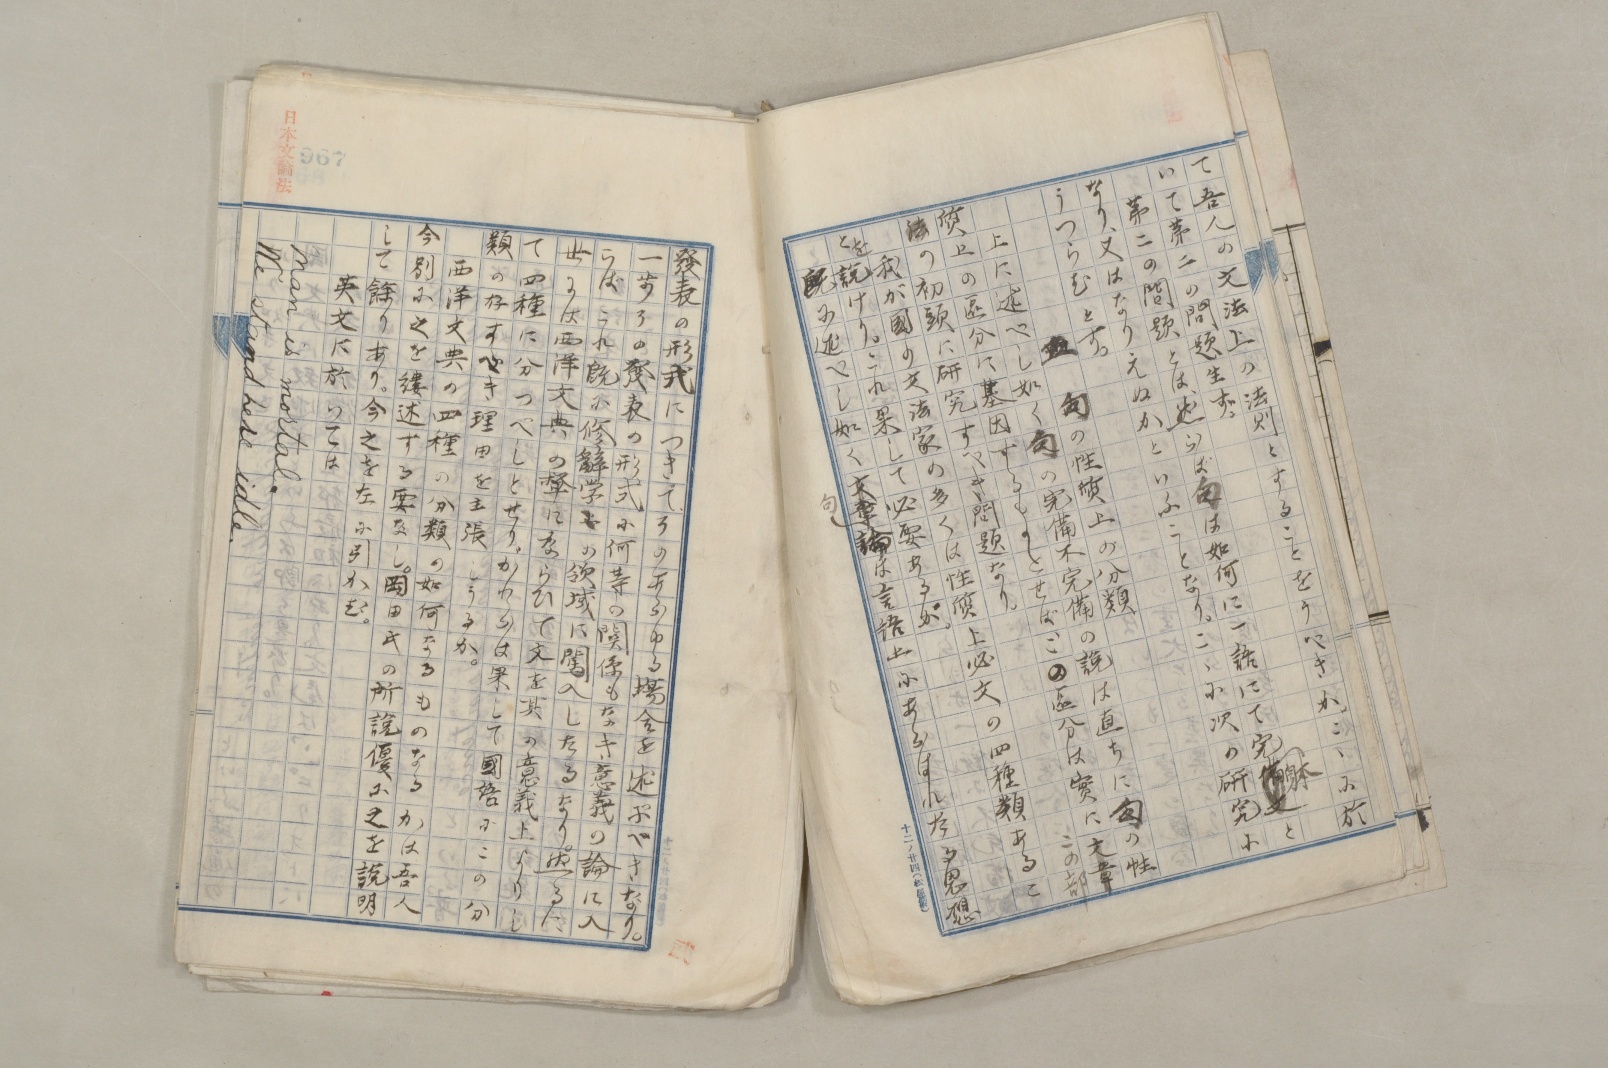 て吾人の文法上の法則とすることをうべきか。こゝに於
いて第二の問題生ず。
第二の問題とは、然らば句は如何に一語にて完備文と
なり、又はなりえぬかといふことなり。こゝに次の研究に
うつらむとす。
句の性質上の分類
上に述べし如く句の完備不完備の説は直ちに句の性
質上の区分に基因するものとせばこの区分は実に文章
法の初頭に研究すべき問題なり。
我が國の文法家の多くは性質上必文の四種類あるこ
とを説けり。これ果して必要あるか。
既に述べし如く文章論は言語上にあらはれたる思想
句
十二ノ廿四(松屋製)
發表の形式につきて、そのあらゆる場合を述ぶべきなり。
一歩その發表の形式に何等の関係もなき意義の論に入
らばこれ既に修辭学の領域に闖入したるなり。然るに
世には西洋文典の顰にならひて文を其の意義上よりし
て四種に分つべしとせり。かれらは果して國語にこの分
類の存すべき理由を主張しうるか。
西洋文典の四種の分類の如何なるものなるかは吾人
今別に之を縷述する要なし。岡田氏の所説優に之を説明
して餘りあり。今之を左に引かむ。
英文に於いては
man is mortal.
We stand here idle.
日本文論法
967